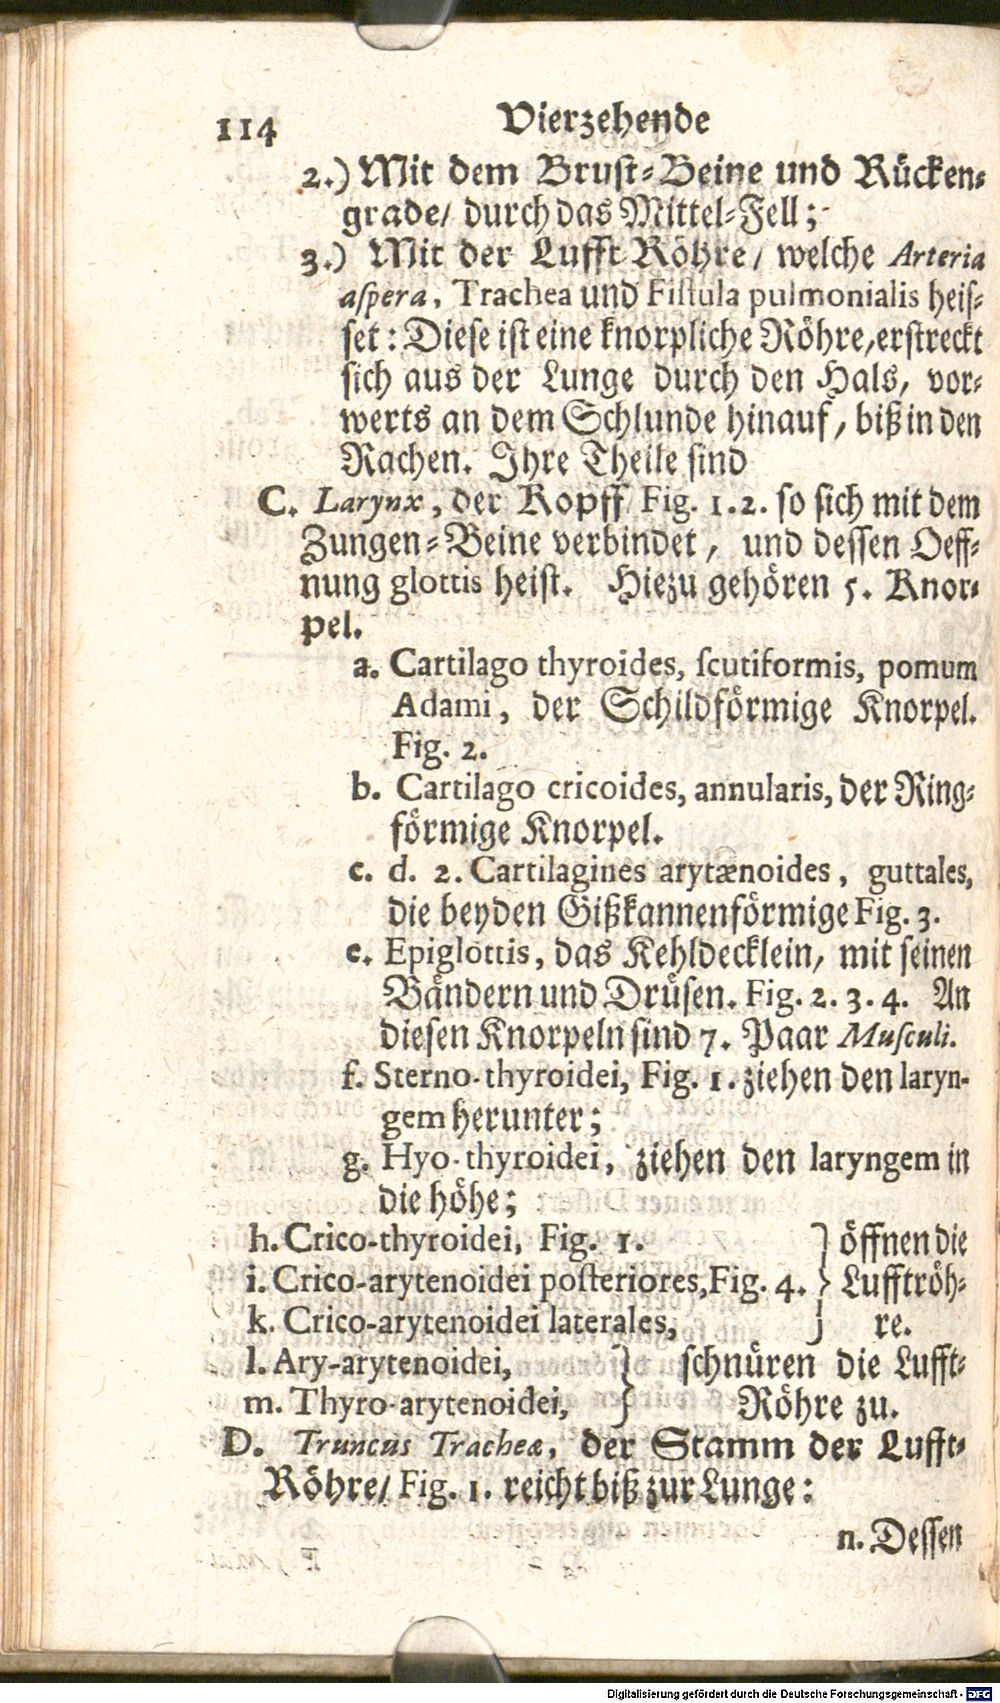 114 Vierzehende
2.) Mit dem Brust-Beine und Rücken-
grade/ durch das Mittel-Fell;
3.) Mit der Lufft-Röhre/ welche Arteria
aſpera, Trachea und Fiſtula pulmonialis heiſ-
ſet: Dieſe iſt eine knorpliche Röhre/ erſtreckt
ſich aus der Lunge durch den Hals/ vor-
werts an dem Schlunde hinauf/ biß in den
Rachen. Ihre Theile ſind
C. Larynx, der Kopff Fig. 1. 2. ſo ſich mit dem
Zungen-Beine verbindet/ und deſſen Oeff-
nung glottis heiſt. Hiezu gehören 5. Knor-
pel.
a. Cartilago thyroides, ſcutiformis, pomum
Adami, der Schildförmige Knorpel.
Fig. 2.
b. Cartilago cricoides, annularis, der Ring-
förmige Knorpel.
c. d. 2. Cartilagines arytænoides, guttales,
die beyden Gißkannenförmige Fig. 3.
e. Epiglottis, das Kehldecklein/ mit ſeinen
Bändern und Drüſen. Fig. 2. 3. 4. An
dieſen Knorpeln ſind 7. Paar Muſculi.
f. Sterno-thyroidei, Fig. 1. ziehen den laryn-
gem herunter;
g. Hyo-thyroidei, ziehen den laryngem in
die höhe;
h. Crico-thyroidei, Fig. 1. } öffnen die
i. Crico-arytenoidei poſteriores, Fig. 4. } Lufftröh-
k. Crico-arytenoidei laterales, } re.
l. Ary-arytenoidei, } ſchnüren die Lufft-
m. Thyro-arytenoidei, } Röhre zu.
D. Truncus Tracheæ, der Stamm der Lufft-
Röhre/ Fig. 1. reicht biß zur Lunge:
n. Deſſen
Digitalisierung gefördert durch die Deutsche Forschungsgemeinschaft - DFG